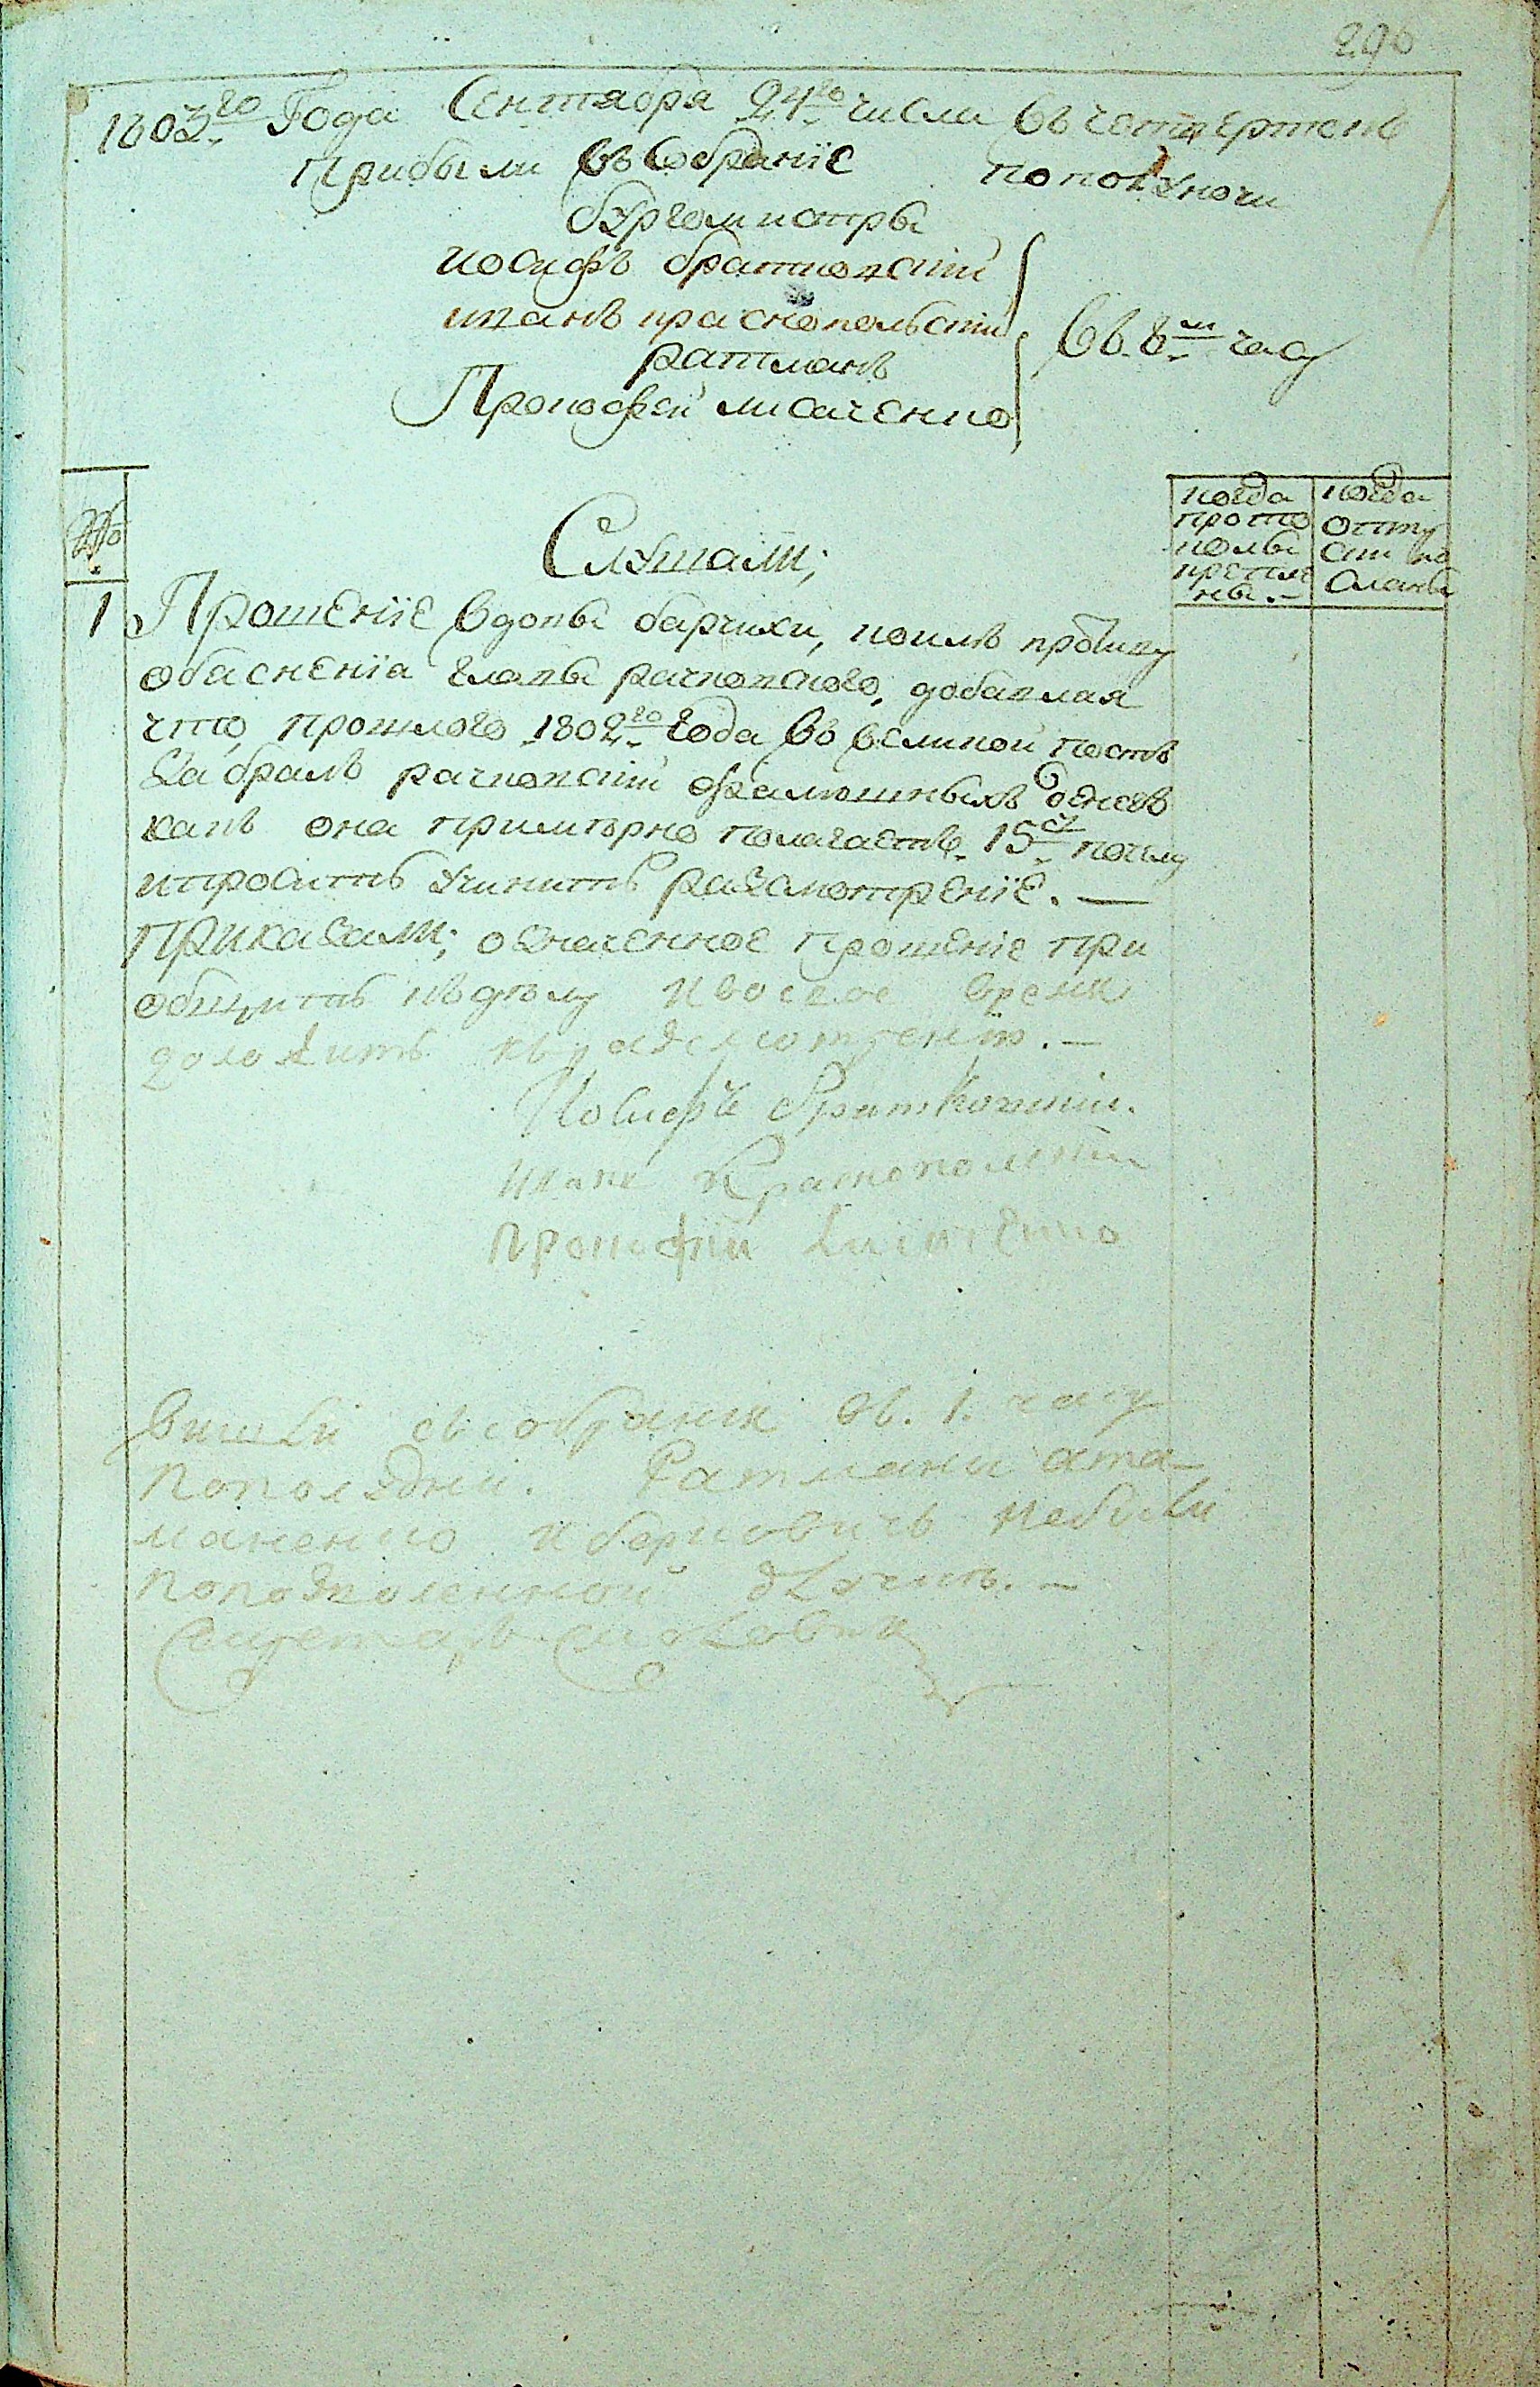 290
1803го Года Сентября 24го числа въ четвертокъ
Прибыли въ Собраніе пополуночи
бургомистры
иосифъ братковскій
иванъ краснопольскій
въ 8м часу
ратманъ
Прокофей лисаченко
№
когда прото колы крепле ны.
когда отпу ски по сланы
Слушали;
1 Прошеніе вдовы барчихи, коимъ противу
обяснения главы рачковского, добавляя
что, прошлого 1802го года въ великой постъ
забралъ рачковскій фальшивыхъ денегъ
какъ она примѣрно полагаетъ 15 р. почему
и проситъ учинить разсмотреніе.
Приказали; означенное прошеніе при
общить къ дѣлу и во свое время
доложить къ разсмотренію.
Иосифъ братковский
Иванъ Краснопольский
Прокофий Лисаченко
Вишли съ собрания въ 1. часу
пополудни. Ратмани ата-
маненко и берковичъ небили
Секретарь